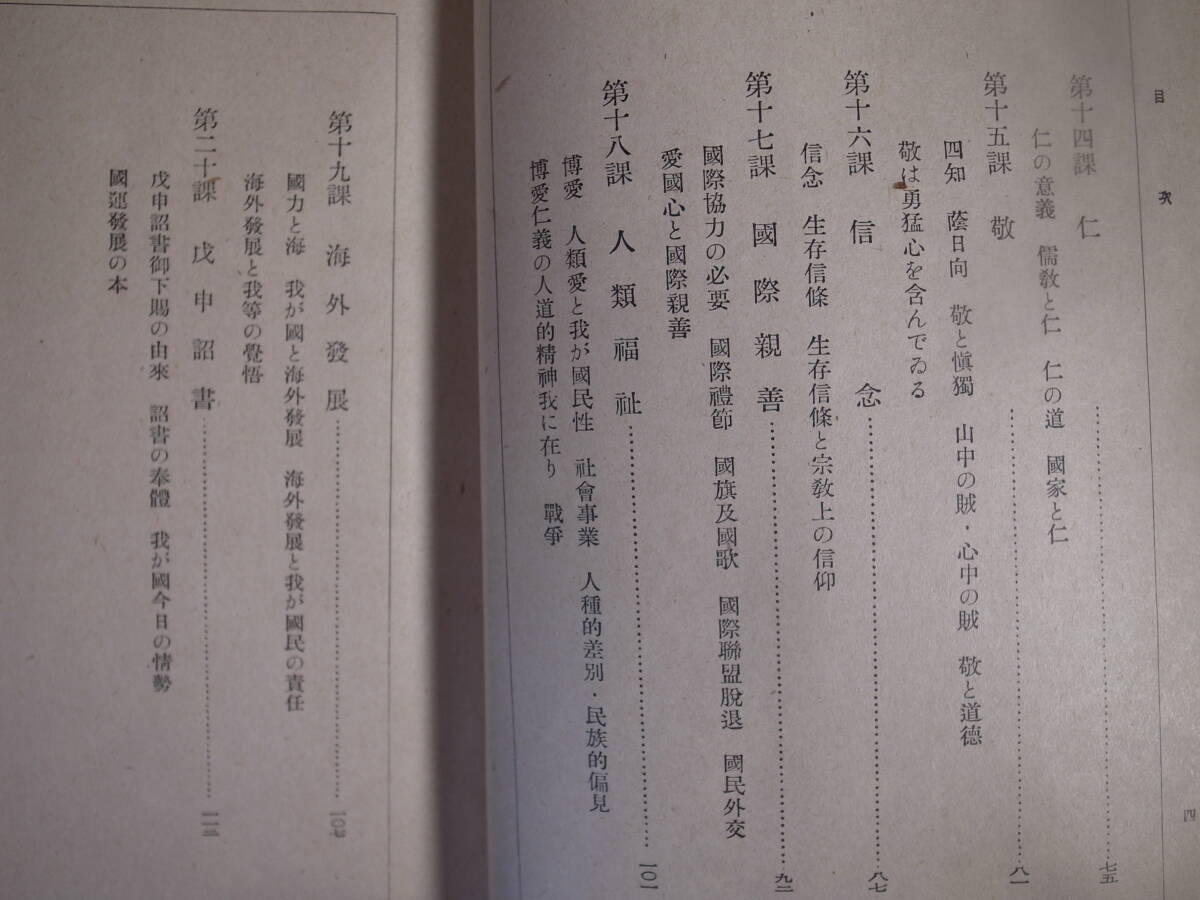 目次
四
第十四課 仁……七五
仁の意義 儒教と仁 仁の道 國家と仁
第十五課 敬……八一
四知 蔭日向 敬と愼獨 山中の賊・心中の賊 敬と道德
敬は勇猛心を含んでゐる
第十六課 信念……八七
信念 生存信條 生存信條と宗教上の信仰
第十七課 國際親善……九二
國際協力の必要 國際禮節 國旗及國歌 國際聯盟脫退 國民外交
愛國心と國際親善
第十八課 人類福祉……一〇一
博愛 人類愛と我が國民性 社會事業 人種的差別・民族的偏見
博愛仁義の人道的精神我に在り 戰爭
第十九課 海外發展……一〇七
國力と海 我が國と海外發展 海外發展と我が國民の責任
海外發展と我等の覺悟
第二十課 戊申詔書……一一二
戊申詔書御下賜の由來 詔書の奉體 我が國今日の情勢
國運發展の本